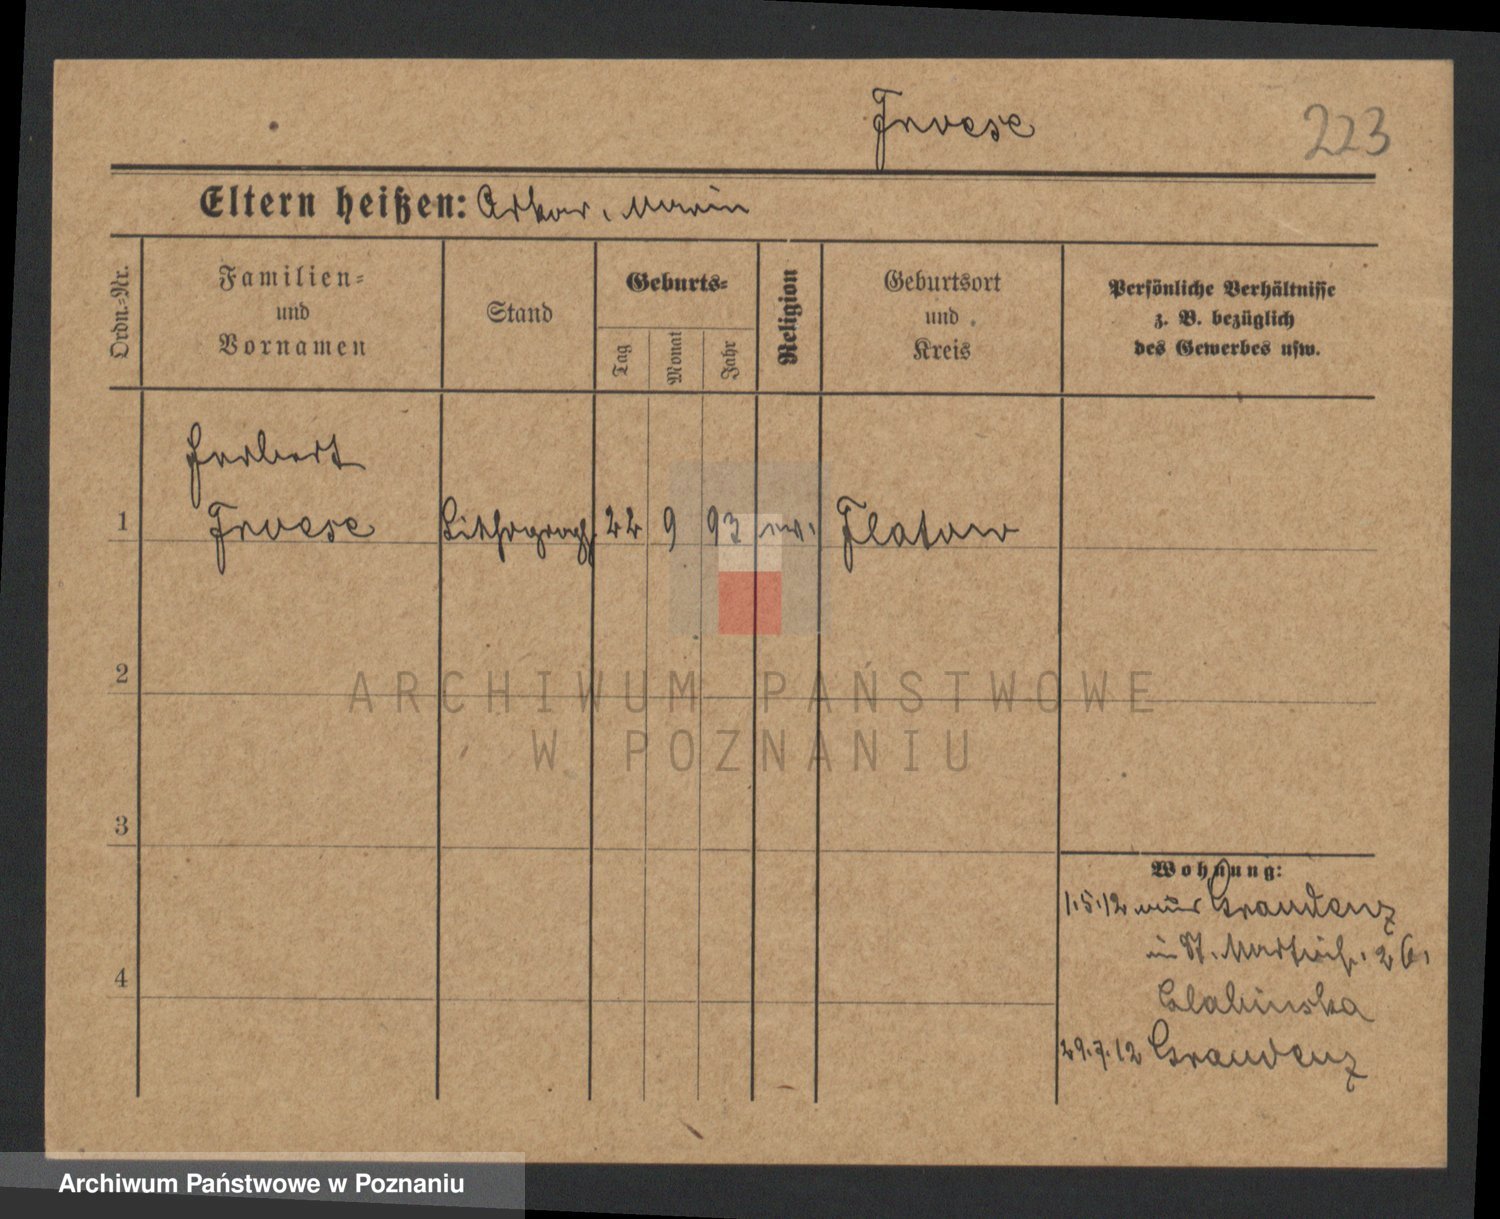 Froese 223
Eltern heißen: Oskar, Marie
Ordn.-Nr.
Familien-
und
Vornamen
Stand
Geburts-
Tag
Monat
Jahr
Religion
Geburtsort
und
Kreis
Persönliche Verhältnisse
z. B. bezüglich
des Gewerbes usw.
Herbert
1 Froese Lithograph 22 9 93 ev. Flatow
2
ARCHIWUM PAŃSTWOWE
W POZNANIU
3
Wohnung:
1.5.12 aus Graudenz
in St. Martinstr. 26,
4
29.7.12 Graudenz
Archiwum Państwowe w Poznaniu